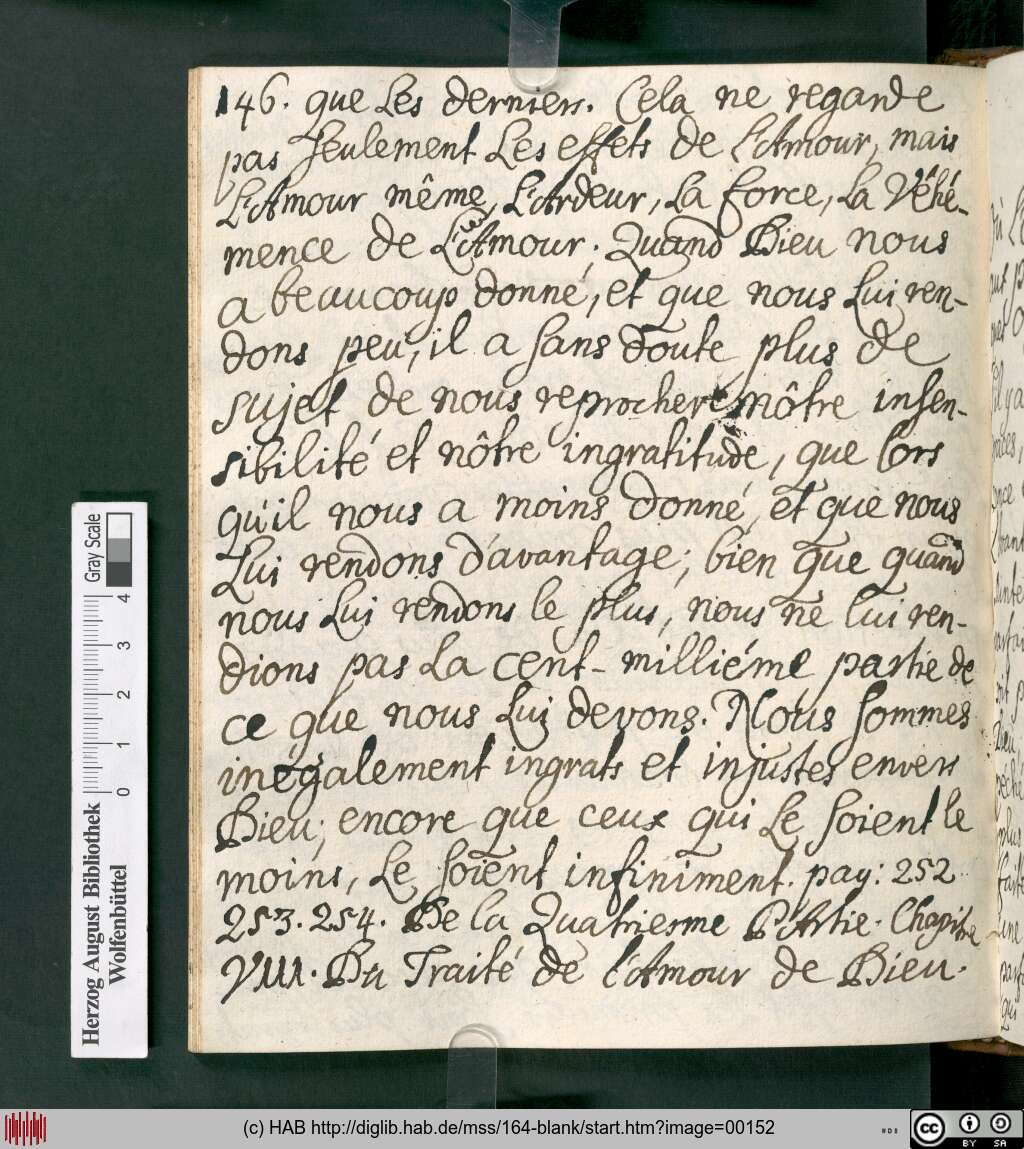 146. que Les derniers. Cela ne regarde
pas seulement Les effets de L'Amour, mais
L'Amour même, L'Ardeur, La force, La Véhé-
mence de L'Amour. Quand Dieu nous
a beaucoup donné, et que nous Lui ren-
dons peu, il a sans doute plus de
sujet de nous reprocher nôtre insen-
sibilité et nôtre ingratitude, que Lors
qu'il nous a moins donné, et que nous
Lui rendons d'avantage; bien que quand
nous Lui rendons le plus, nous ne lui ren-
dions pas La cent-milliéme partie de
ce que nous Lui devons. Nous sommes
inégalement ingrats et injustes envers
Dieu; encore que ceux qui Le soient le
moins, Le soient infiniment. pag: 252
253. 254. De la Quatriesme PArtie. Chapitre
VIII. Du Traité de l'Amour de Dieu.
Gray Scale
0 1 2 3 4
Herzog August Bibliothek
Wolfenbüttel
(c) HAB http://diglib.hab.de/mss/164-blank/start.htm?image=00152
cc BY SA